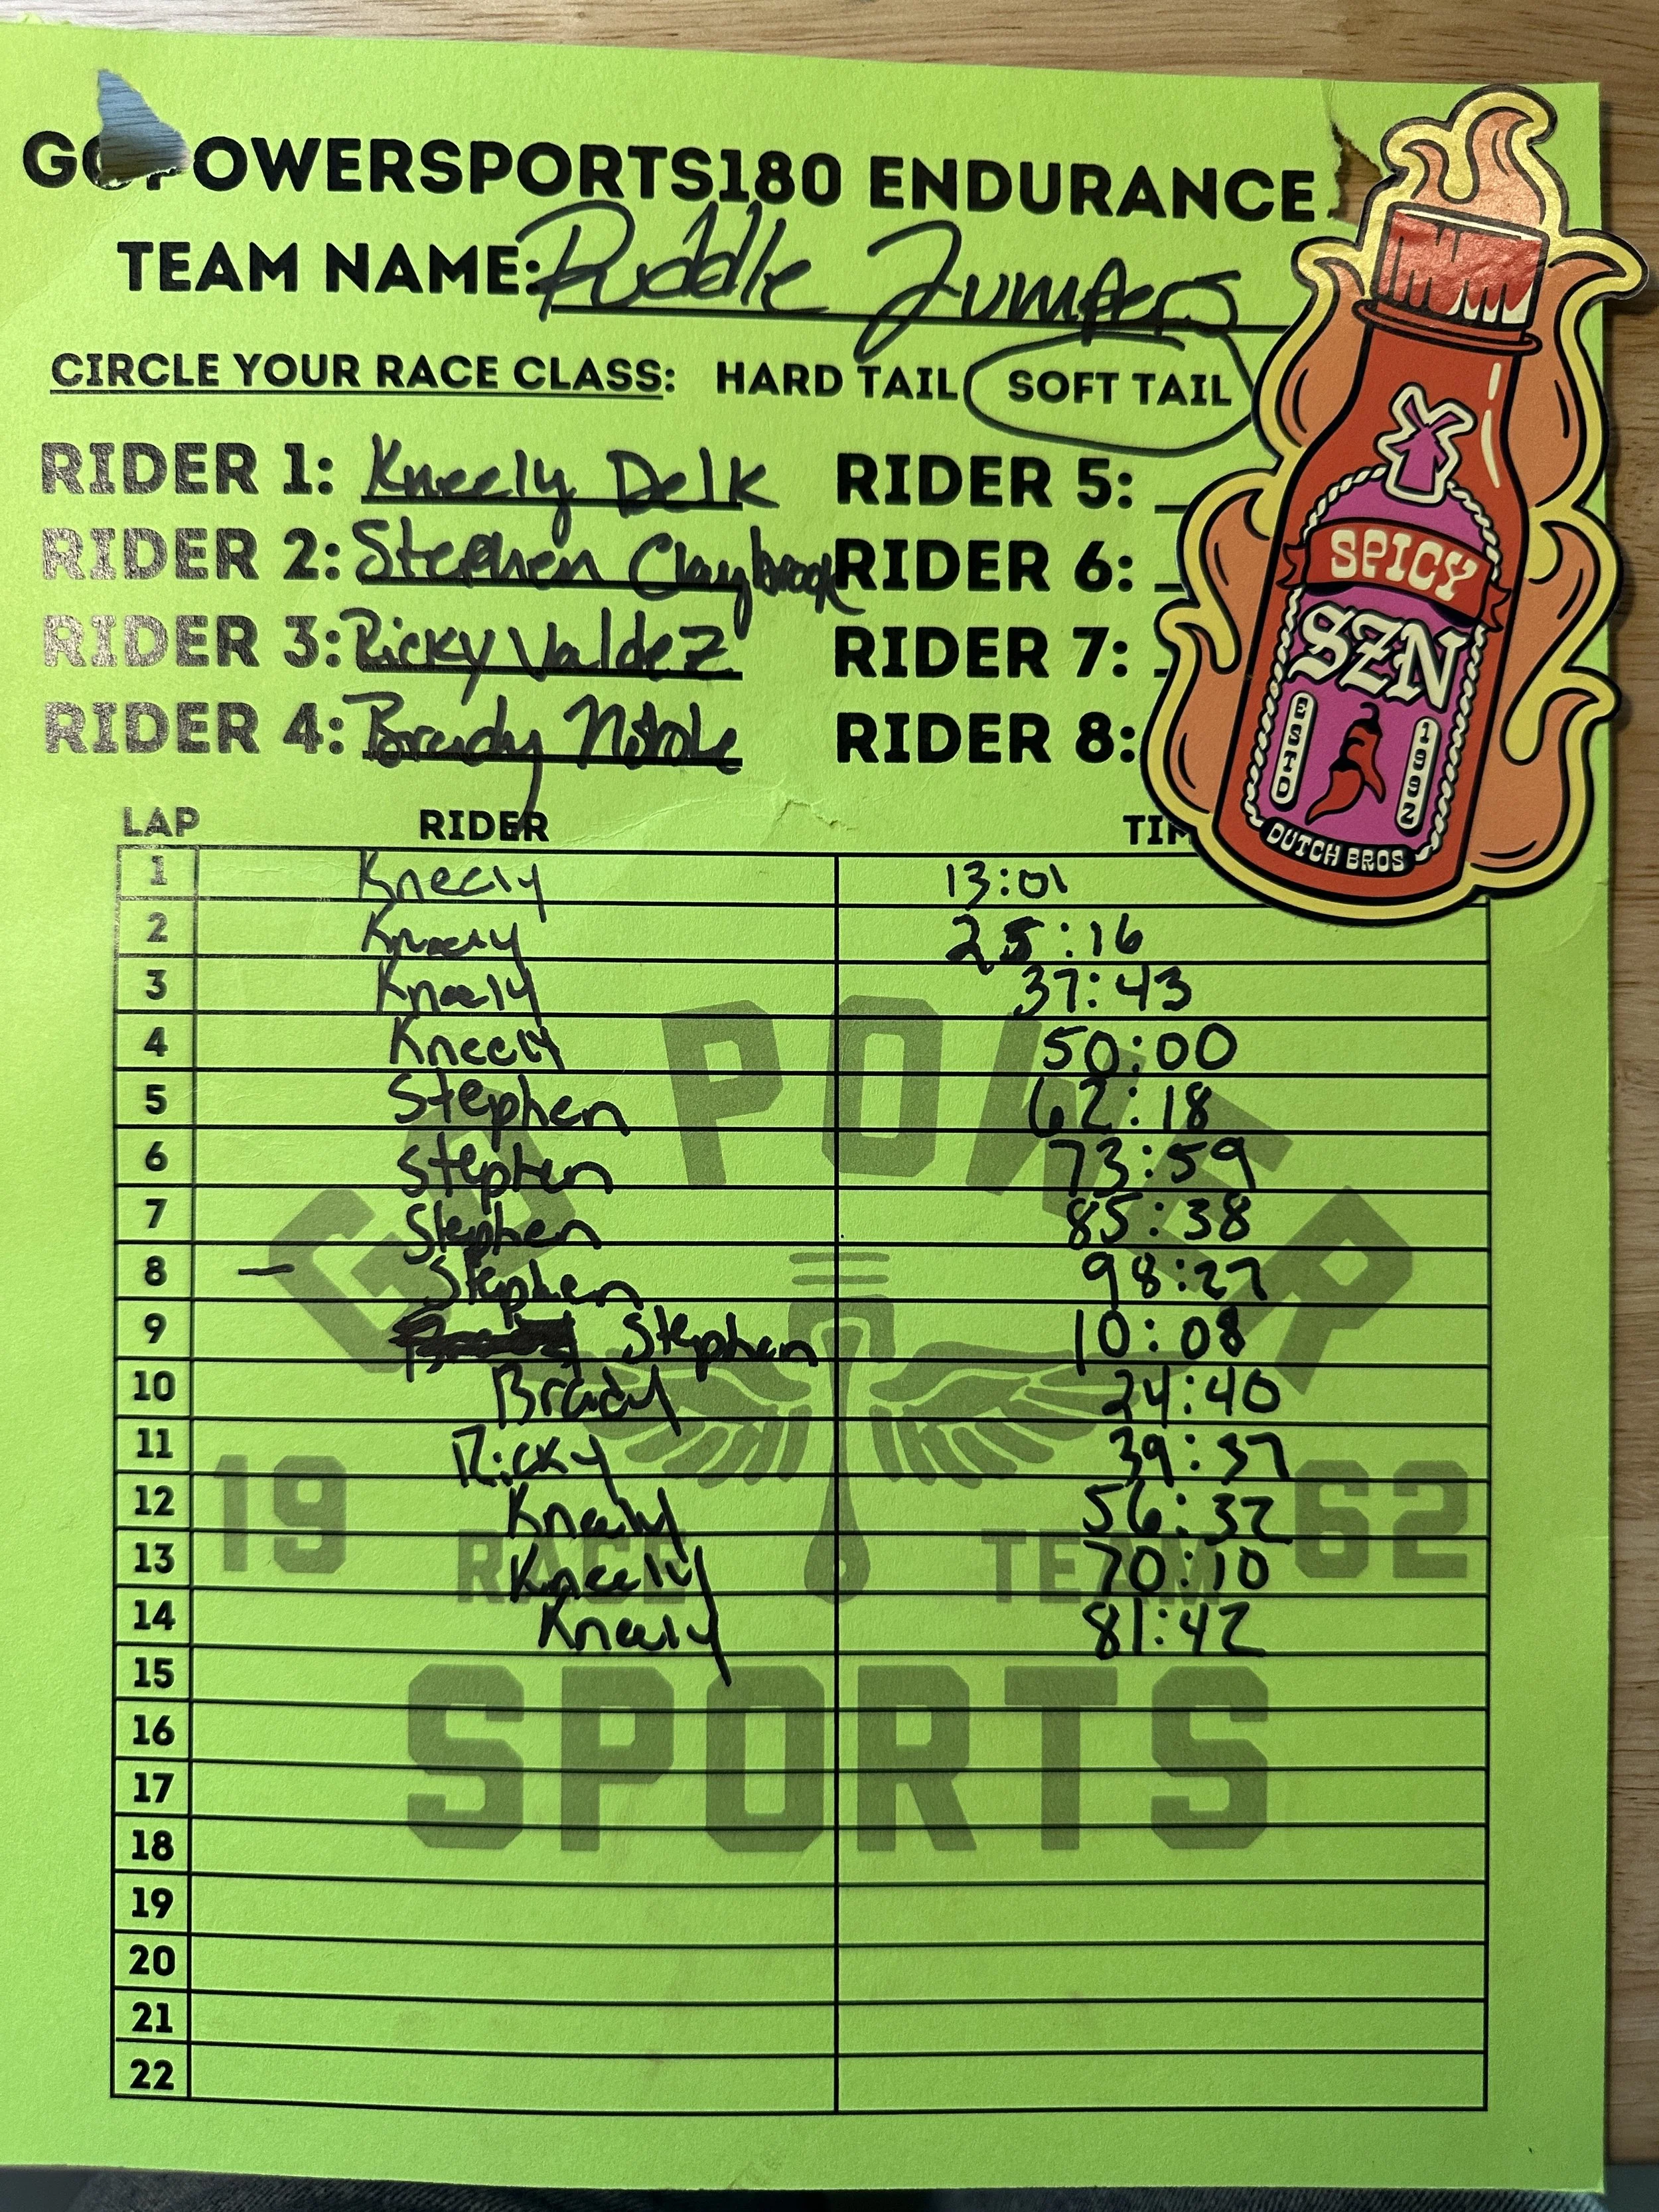 GOPOWERSPORTS180 ENDURANCE
TEAM NAME: Puddle Jumpers
CIRCLE YOUR RACE CLASS: HARD TAIL SOFT TAIL
RIDER 1: Kneely Delk RIDER 5:
RIDER 2: Stephen Claybrook RIDER 6:
RIDER 3: Ricky Valdez RIDER 7:
RIDER 4: Brady RIDER 8:
SPICY
SZN
ESTD 1992
DUTCH BROS
LAP RIDER
1 Kneely 13:01
2 Kneely 25:16
3 Kneely 37:43
4 Kneely 50:00
5 Stephen 62:18
6 Stephen 73:59
7 Stephen 85:38
8 — Stephen 98:27
9 Stephen 10:08
10 Brady 24:40
11 Ricky 39:37
12 Kneely 56:32
13 Kneely 70:10
14 Kneely 81:42
15
16
17
18
19
20
21
22
GO POWER
19 62
RACE TEAM
SPORTS